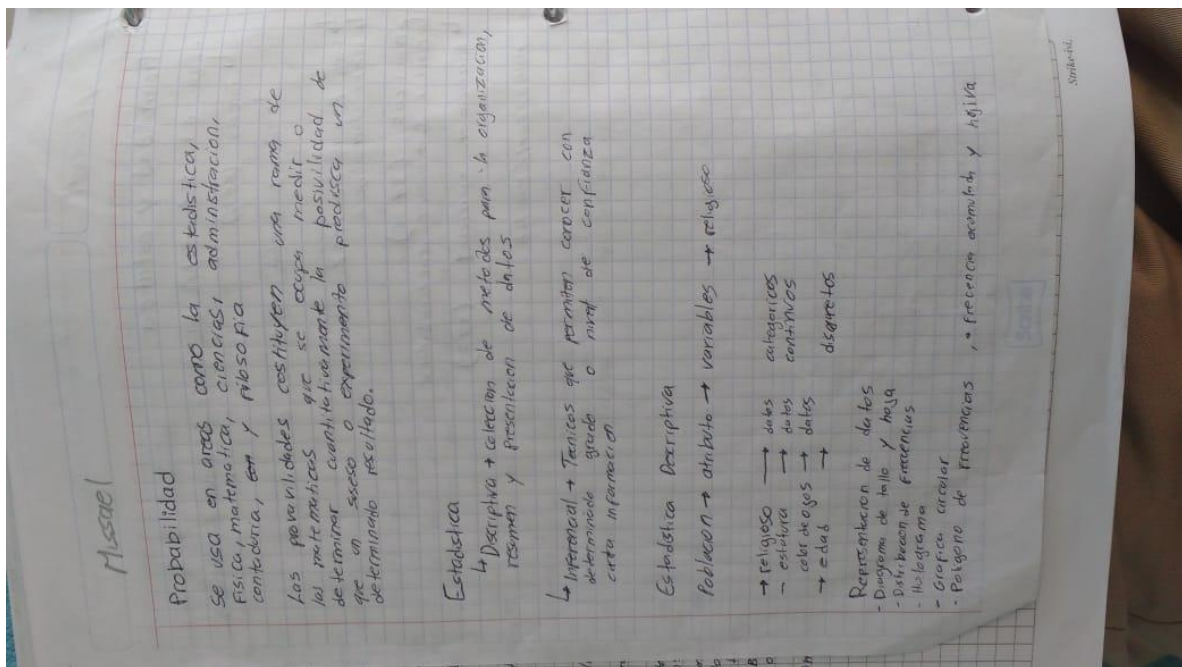 Missael
Probabilidad
Se usa en areas como la estadistica,
Fisica, matematica, ciencias, administracion,
contaduria, y Filosofia
Las provavilidades costituyen una rama de
las matematicas que se ocupa medir o
determinar cuantitativamante la posivilidad de
que un suseso o experimento prodisca un
determinado resultado.
Estadistica
↳ Descriptiva → coleccion de metodos para la organización,
resumen y presentacion de datos
↳ Inferencial → Tecnicas que permiten conocer con
determinado grado o nivel de confianza
cierta informacion.
Estadistica Descriptiva
Poblacion → atributo → variables → religioso
→ religioso → datos categoricos
- estatura → datos continuos
color de ogos → datos
→ edad → disqretos
Representacion de datos
- Diagrama de tallo y hoja
- Distribucion de Frecuencias
- Hologramа
- Grafica circular
- Poligono de Frecuencias, • Frecencia acumulada y hojiva